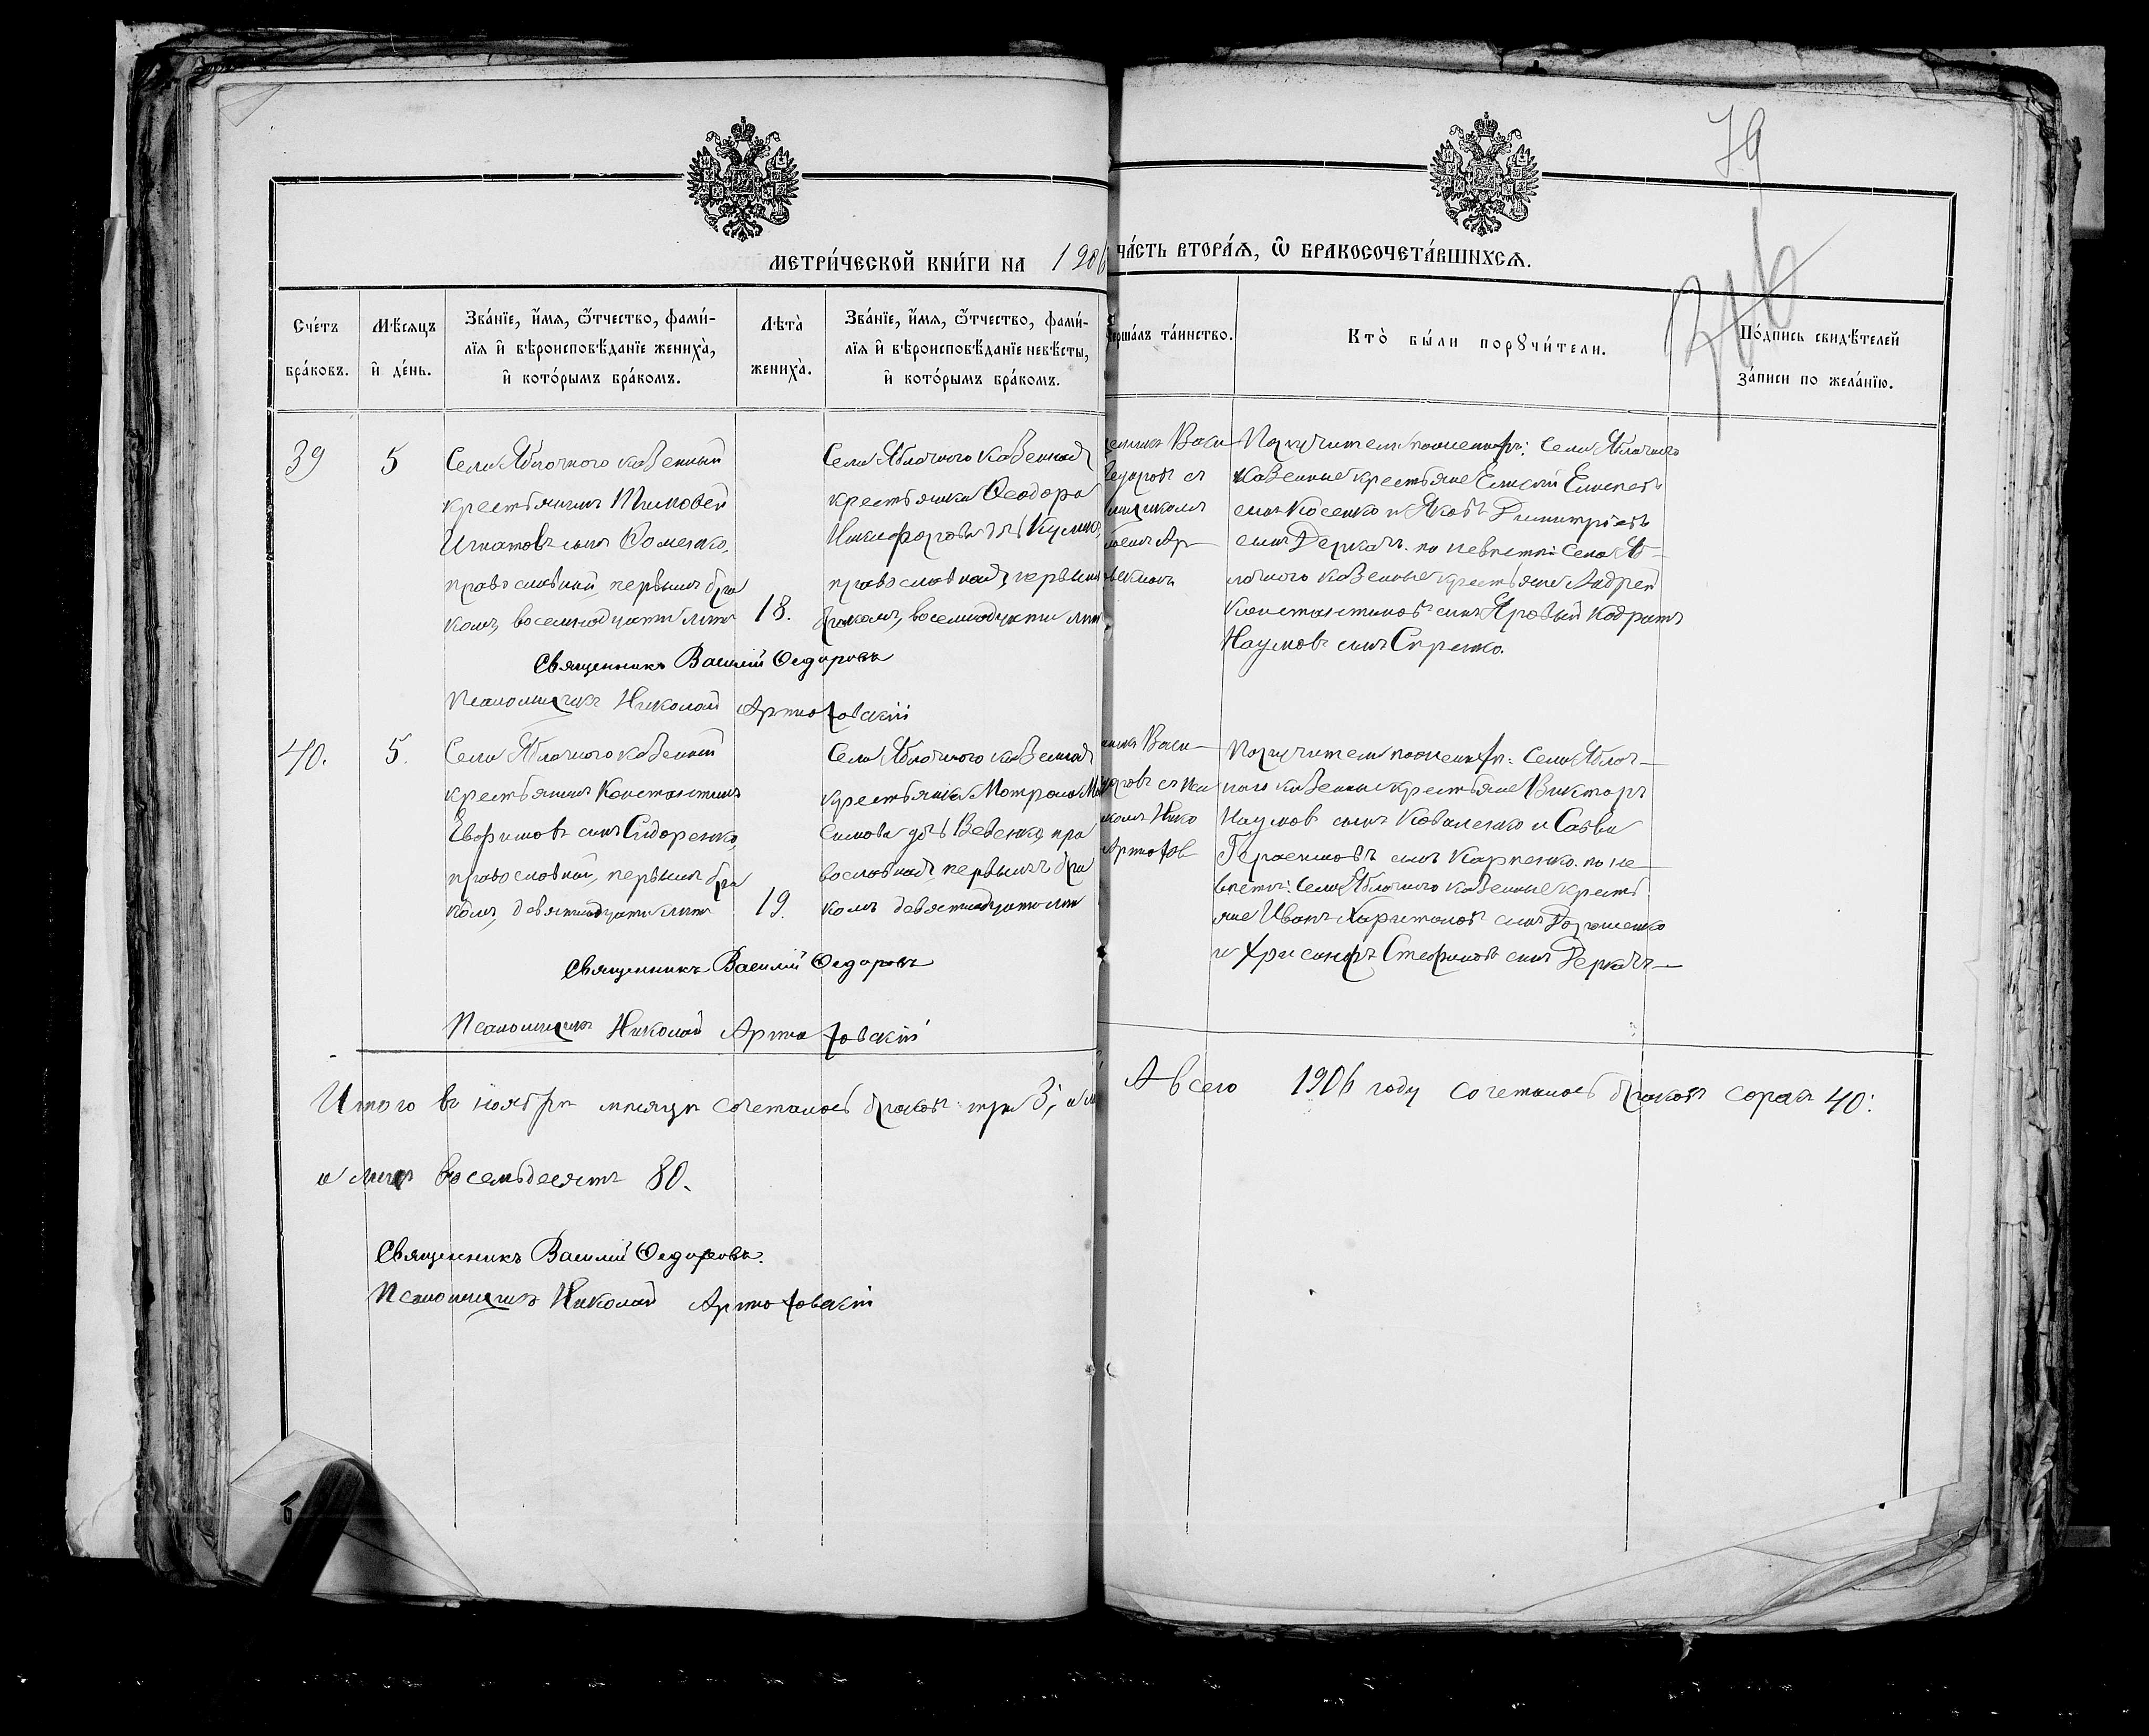 79
МЕТРИ́ЧЕСКОЙ КНИ́ГИ НА 1906
ЧА́СТЬ ВТОРА́Ѧ, Ѿ БРАКОСОЧЕТА́ВШИХСѦ.
Сче́тъ бра́ковъ.
Мѣ́сѧцъ и҆ де́нь.
Зва́нїе, и҆́мѧ, ѻ҆́тчество, фами́-
лїѧ и҆ вѣроисповѣ́данїе жениха̀,
и҆ кото́рымъ бра́комъ.
Лѣта̀
жениха̀.
Зва́нїе, и҆́мѧ, ѻ҆́тчество, фами́-
лїѧ и҆ вѣроисповѣ́данїе невѣ́сты,
и҆ кото́рымъ бра́комъ.
ерша́лъ та́инство.
Кто̀ бы́ли порꙋчи́тели.
По́дпись свидѣ́телей
за́писи по жела́нїю.
39
5
Села Яблочного казенный
крестьянинъ Тимофей
Игнатовъ сынъ Фоменко,
православный, первымъ бра
комъ, восемнадцати лѣтъ
18.
Села Яблочного казенная
крестьянка Феодора
Никифорова дочь
православная, первымъ
бракомъ, восемнадцати лѣт
Васи
Федоровъ съ
Ар
Поручители по женихѣ: Села Яблочного
казенные крестьяне Елисей
сынъ Косенко и Яковъ Димитріевъ
сынъ Деркачъ. по невѣстѣ: Села Яб-
лочного казенные крестьяне Андрей
Константиновъ сынъ Яровый Кодратъ
Наумовъ сынъ
Священникъ Василій Федоровъ
Псаломщикъ Николай Артюховскій
40.
5.
Села Яблочного казенный
крестьянинъ Константинъ
Евфимовъ сынъ Сидоренко,
православный, первымъ бра
комъ, девятнадцати лѣтъ
19.
Села Яблочного казенная
крестьянка Матрона Ма
симова дочь Веденко, пра
вославная, первымъ бра
комъ девятнадцати лѣт
Васи-
доровъ съ Пса
комъ Нико
Артюхов
Поручители по женихѣ: Села Яблоч-
ного казенные крестьяне Викторъ
Наумовъ сынъ Коваленко и Савва
Герасимовъ сынъ Карпенко. по не-
вѣстѣ: Села Яблочного казенные кресть
яне Иванъ Харитоновъ сынъ Дорошенко
и Хрисанфъ Стефановъ сынъ Деркачъ
Священникъ Василій Федоровъ
Псаломщикъ Николай Артюховскій
Итого въ ноябрѣ мѣсяцѣ сочеталось браковъ три 3;
А всего 1906 году сочеталось браковъ сорокъ 40:
а лицъ восемьдесятъ 80.
Священникъ Василій Федоровъ.
Псаломщикъ Николай Артюховскій